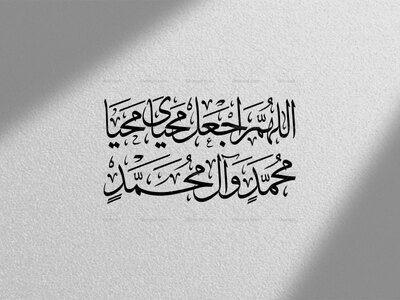 اللهم اجعل محیای محیا
محمدٍ وآل محمدٍ